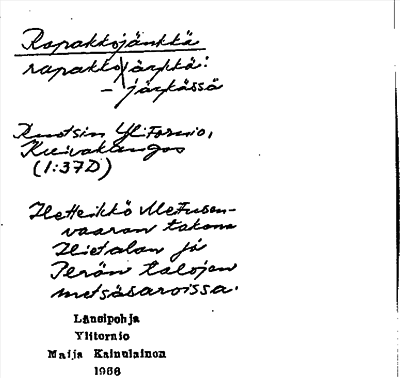 Rapakkojänkkä
rapakko\järkkä:
– järkässä
Ruotsin Ylitornio,
Kuivakangas
(1:37D)
Hetteikkö Metusen-
vaaran takana
Hietalan ja
Perän talojen
metsäsaroissa.
Länsipohja
Ylitornio
Maija Kainulainen
1966